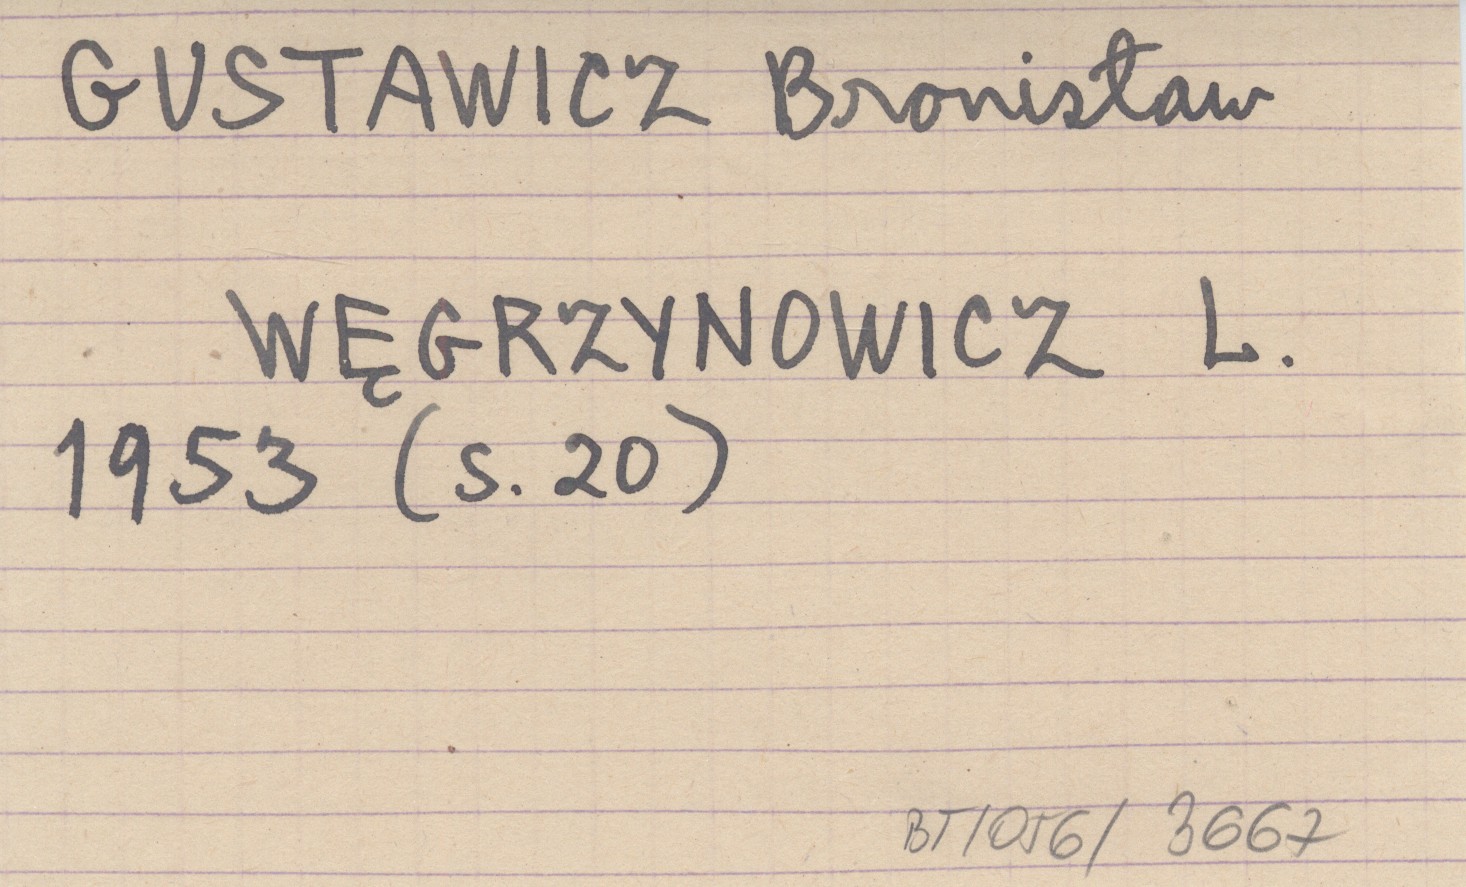 GUSTAWICZ Bronisław
WĘGRZYNOWICZ L.
1953 (s. 20)
BT/OJG/ 3667